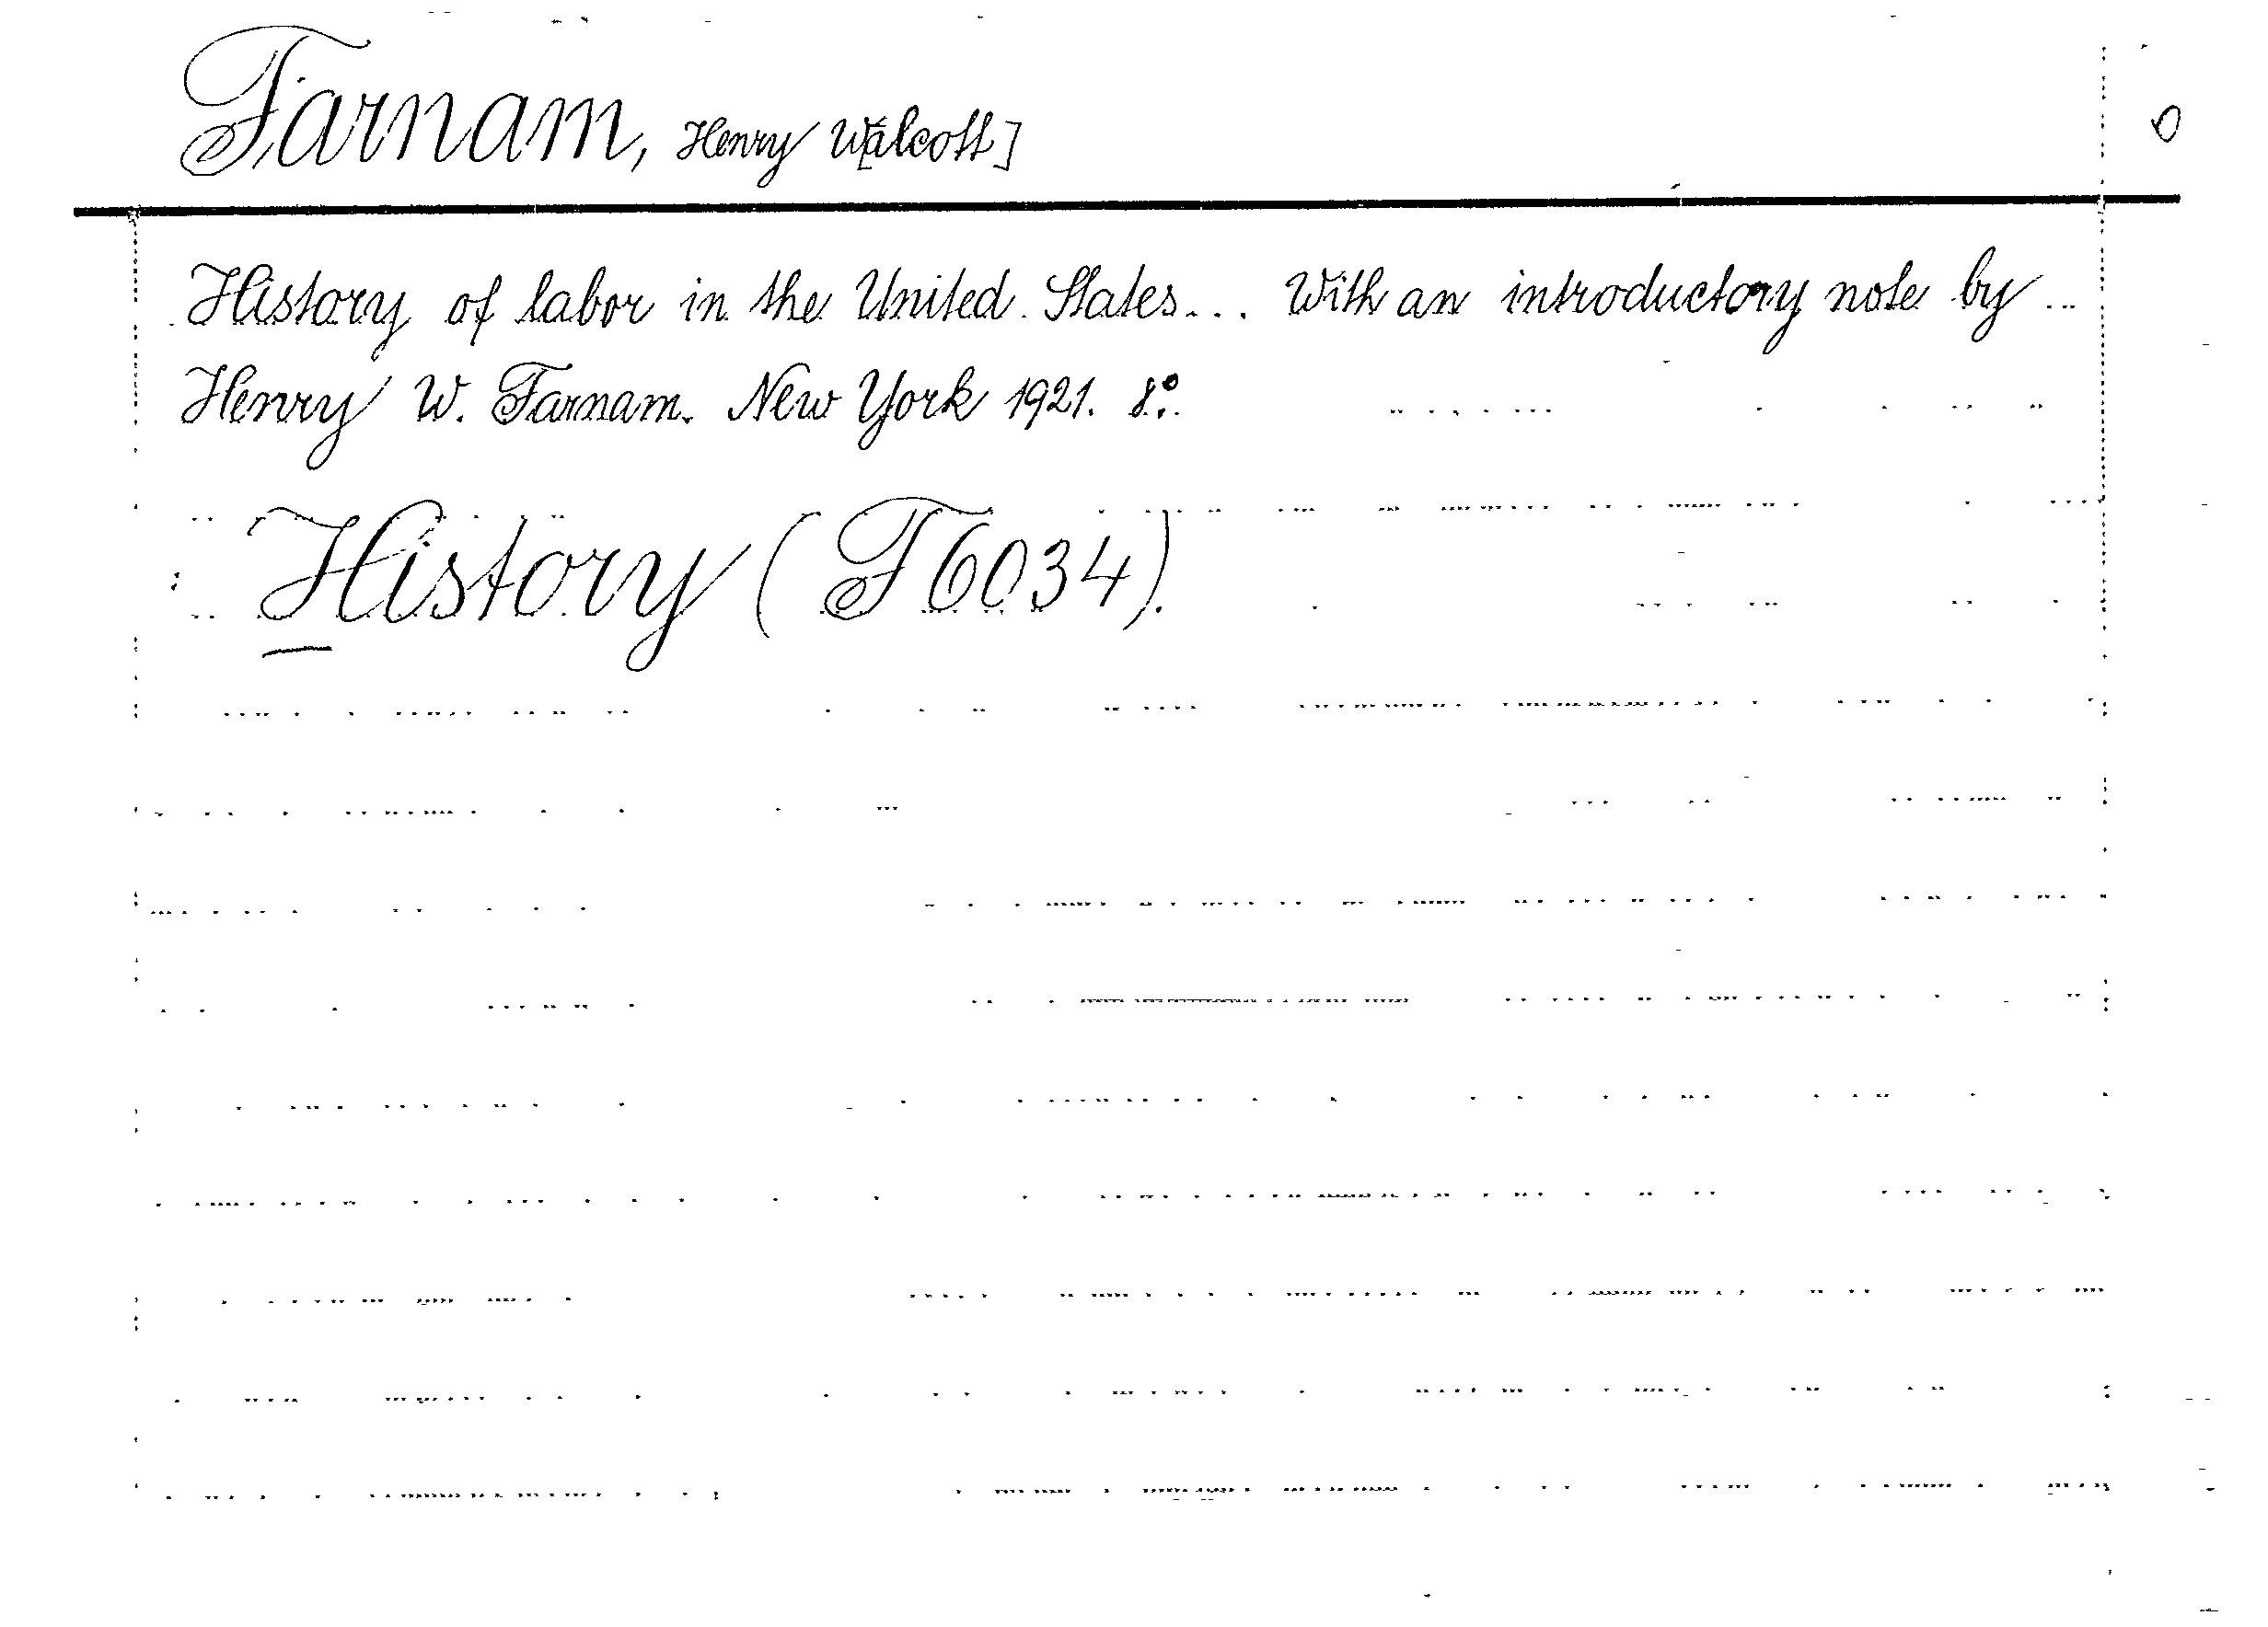 Farnam, Henry W[alcott]
History of labor in the United States... With an introductory note by
Henry W. Farnam. New York 1921. 8°.
History (F6034).